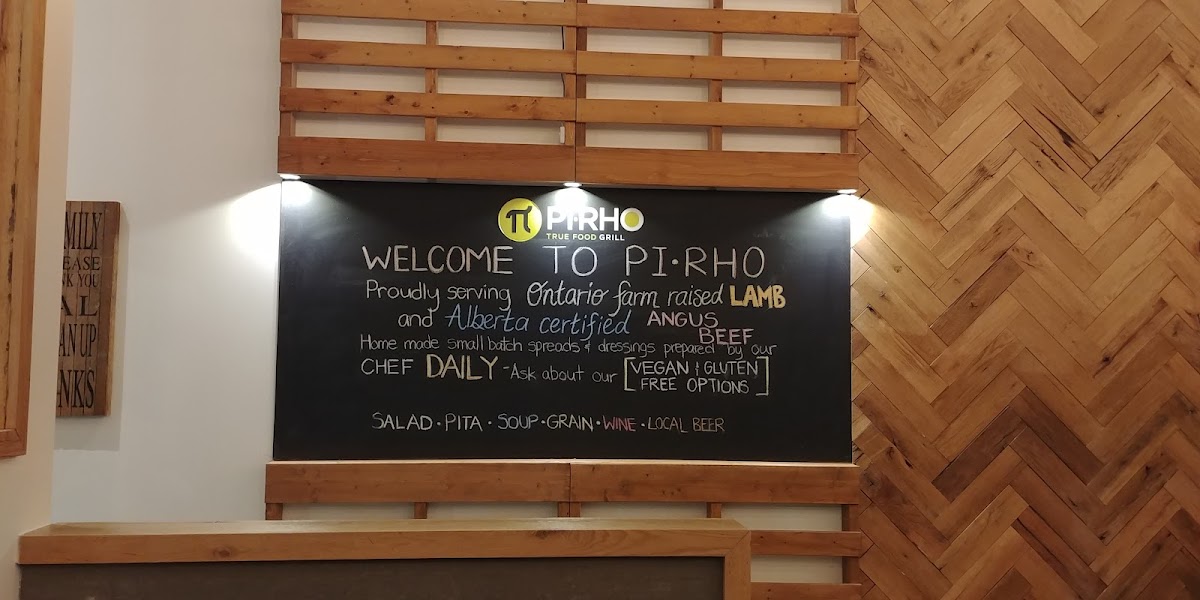 π PI·RHO
TRUE FOOD GRILL
WELCOME TO PI·RHO
Proudly serving Ontario farm raised LAMB
and Alberta certified ANGUS
BEEF
Home made small batch spreads & dressings prepared by our
CHEF DAILY - Ask about our [VEGAN & GLUTEN
FREE OPTIONS]
SALAD · PITA · SOUP · GRAIN · WINE · LOCAL BEER